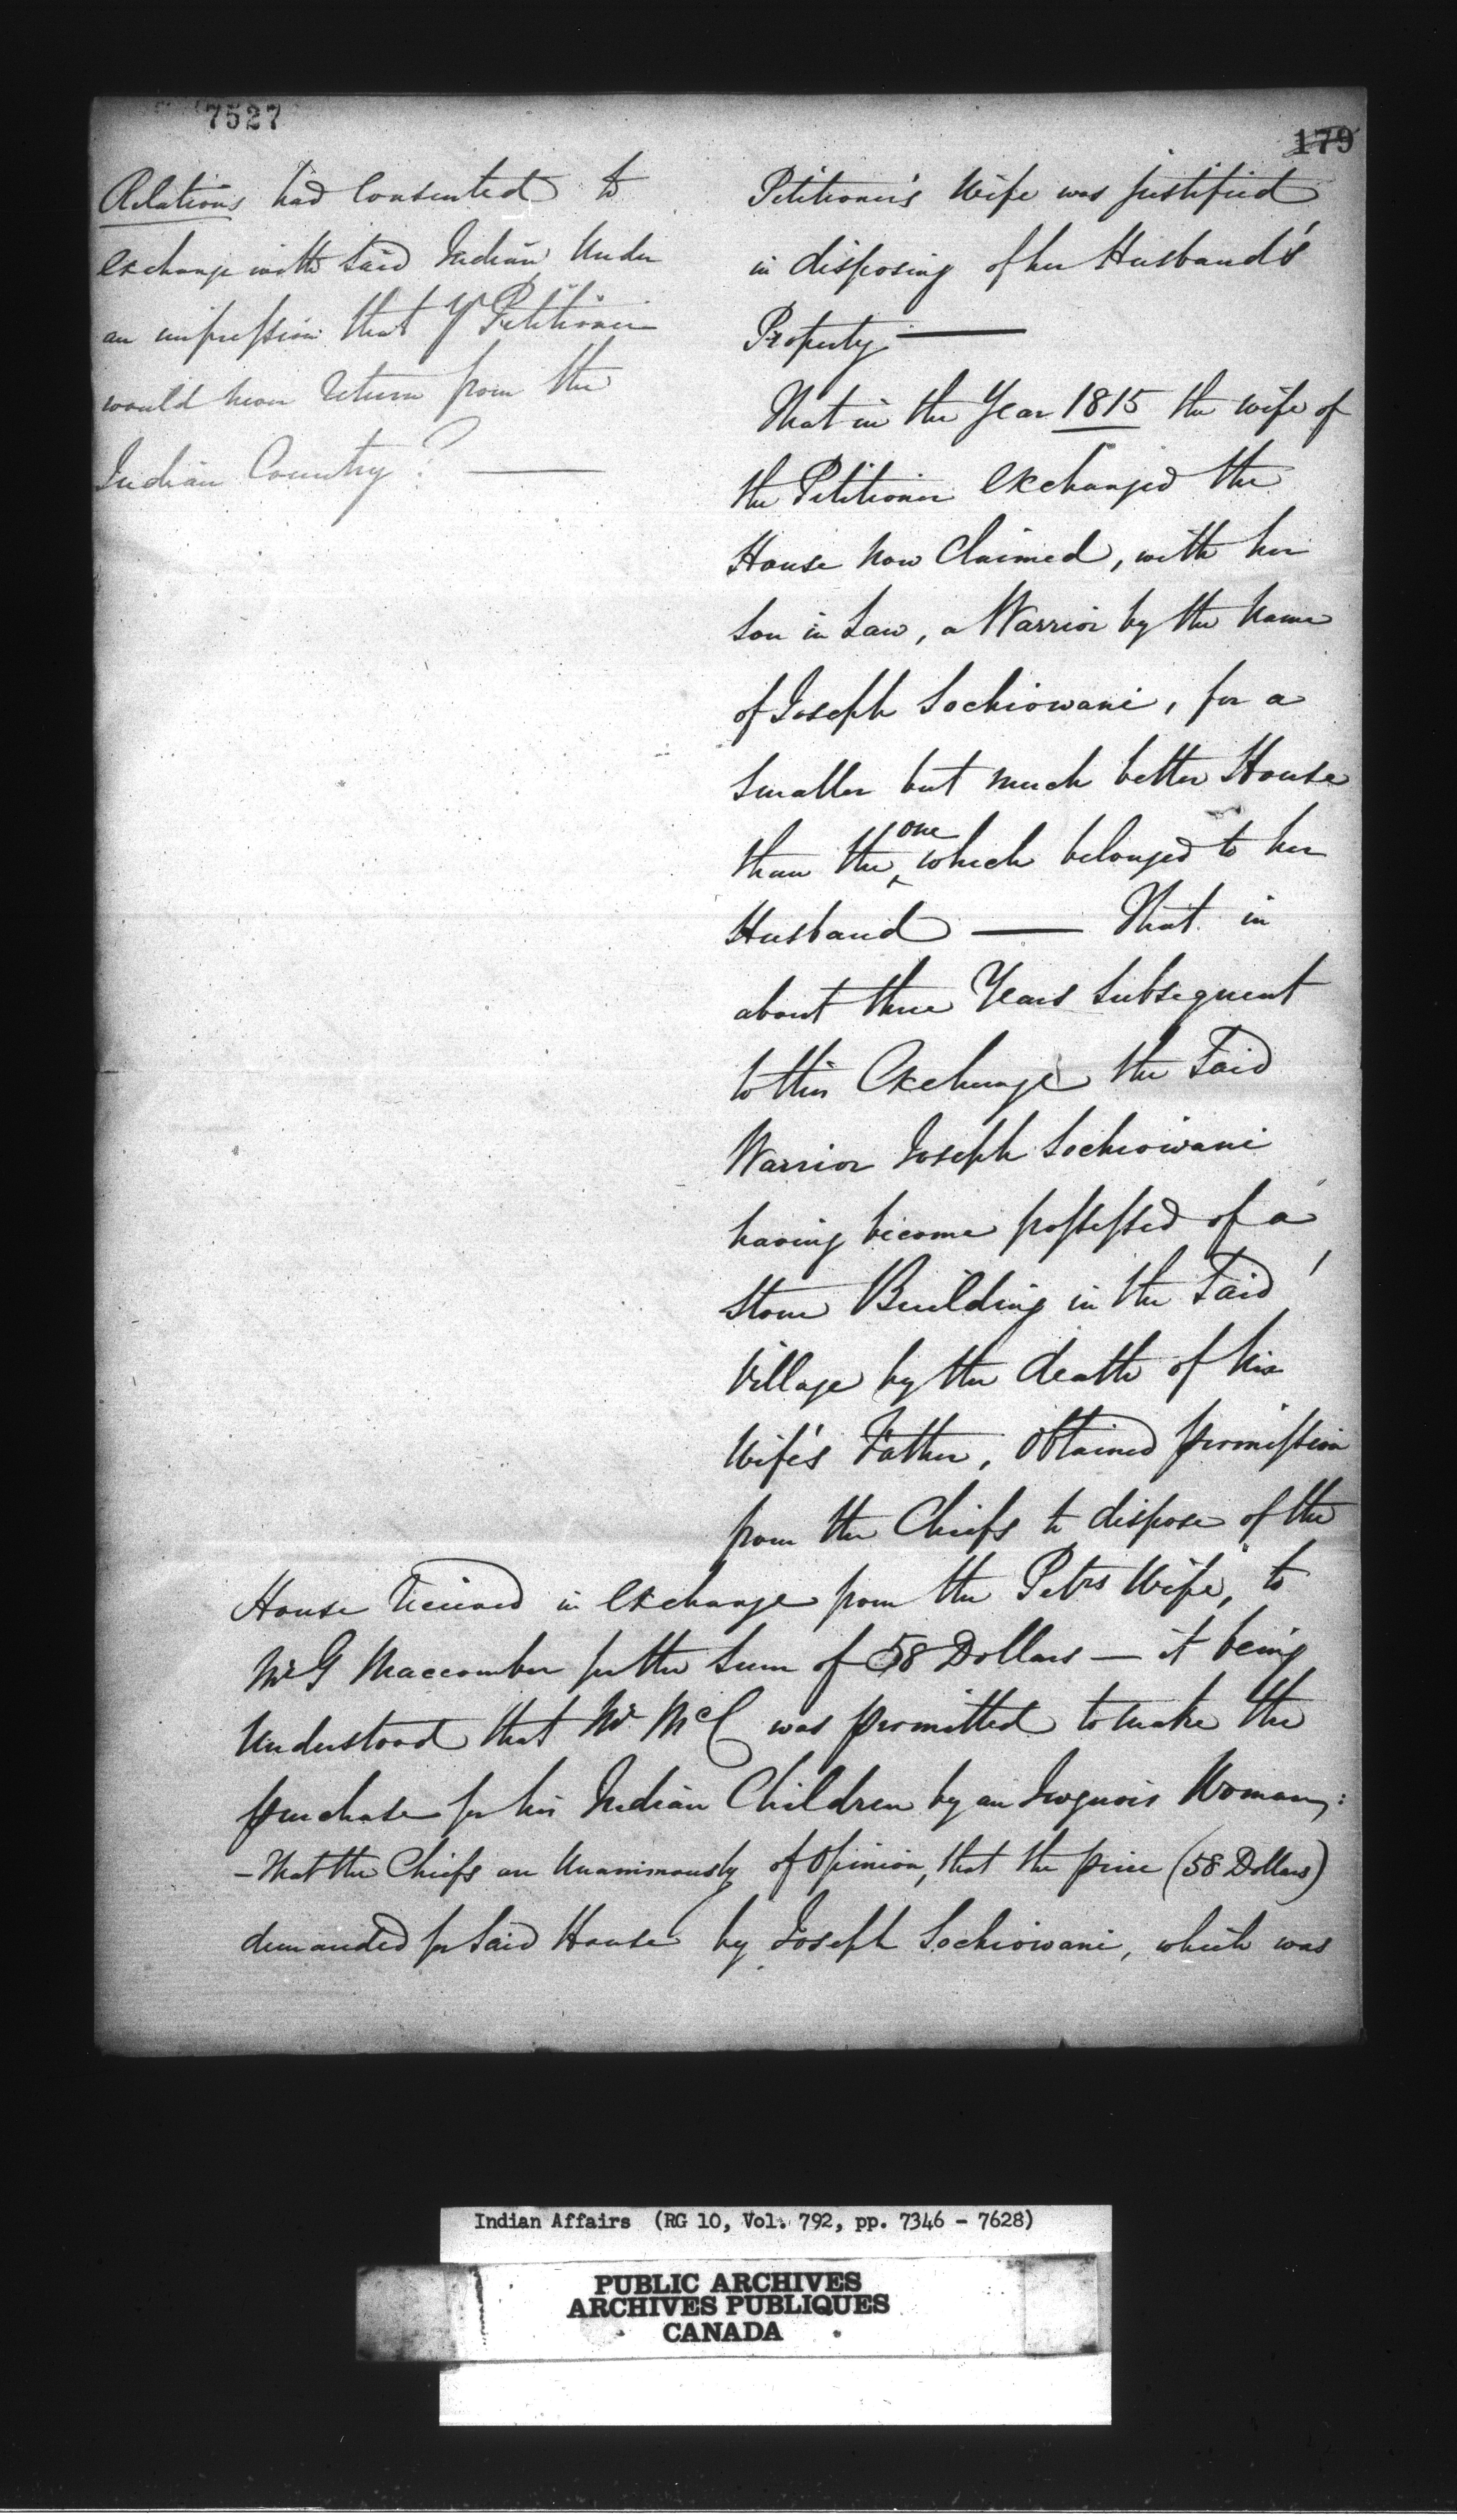 7527
179
Relations had Consented to
exchange with said Indian Under
an impression that yr Petitioner
would never return from the
Indian Country? —
Petitioner's Wife was justified
in disposing of her Husband's
Property —
That in the Year 1815 the wife of
the Petitioner exchanged the
House now Claimed, with her
Son in Law, a Warrior by the name
of Joseph Sochiowani, for a
smaller but much better House
than the one which belonged to her
Husband — That in
about three Years subsequent
to this Exchange the Said
Warrior Joseph Sochiowani
having become possessed of a
Stone Building in the Said
Village by the death of his
Wife's Father, Obtained permission
from the Chiefs to dispose of the
House received in exchange from the Petrs Wife, to
Mr G Maccomber for the Sum of 58 Dollars — it being
Understood that Mr McC was permitted to make the
purchase for his Indian Children by an Iroquois Woman:
– That the Chiefs are Unanimously of Opinion, that the price (58 Dollars)
demanded for Said House by Joseph Sochiowani, which was
Indian Affairs (RG 10, Vol. 792, pp. 7346 - 7628)
PUBLIC ARCHIVES
ARCHIVES PUBLIQUES
CANADA